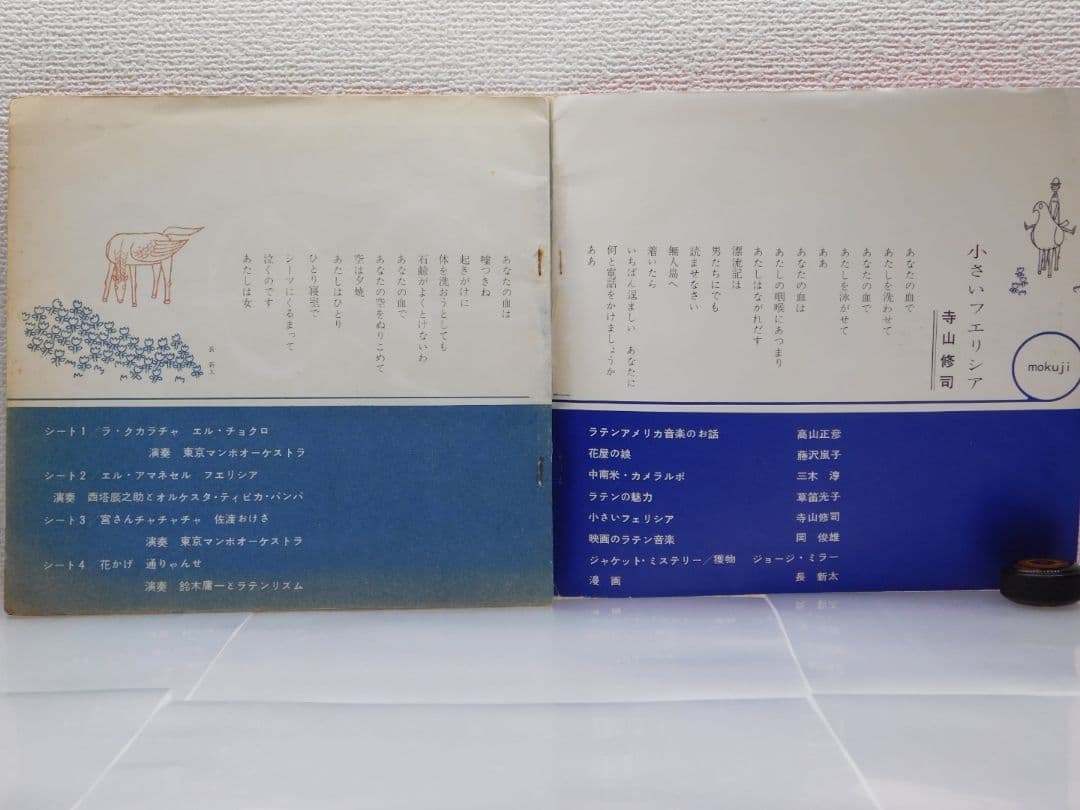 小さいフエリシア
寺山修司
mokuji
あなたの血で
あたしを洗わせて
あなたの血で
あたしを泳がせて
ああ
あなたの血は
あたしの咽喉にあつまり
あたしはながれだす
漂流記は
男たちにでも
読ませなさい
無人島へ
着いたら
いちばん淫ましい あなたに
何と電話をかけましょうか
ああ
あなたの血は
嘘つきね
起きがけに
体を洗おうとしても
石鹸がよくとけないわ
あなたの血で
あなたの空をぬりこめて
空は夕焼
あたしはひとり
ひとり寝室で
シーツにくるまって
泣くのです
あたしは女
長 新太
シート1 ラ・クカラチャ エル・チョクロ
演奏 東京マンボオーケストラ
シート2 エル・アマネセル フエリシア
演奏 西塔辰之助とオルケスタ・ティピカ・パンパ
シート3 宮さんチャチャチャ 佐渡おけさ
演奏 東京マンボオーケストラ
シート4 花かげ 通りゃんせ
演奏 鈴木庸一とラテンリズム
ラテンアメリカ音楽のお話 高山正彦
花屋の娘 藤沢嵐子
中南米・カメラルポ 三木 淳
ラテンの魅力 草笛光子
小さいフェリシア 寺山修司
映画のラテン音楽 岡 俊雄
ジャケット・ミステリー/獲物 ジョージ・ミラー
漫 画 長 新太